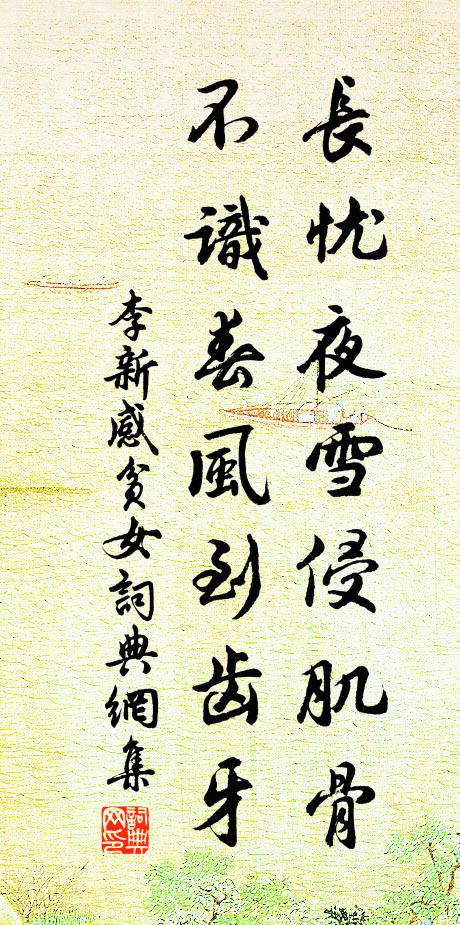 長忧夜雪侵肌骨
不識春風到齿牙
李新感貧女詞典網集
詞典
网印